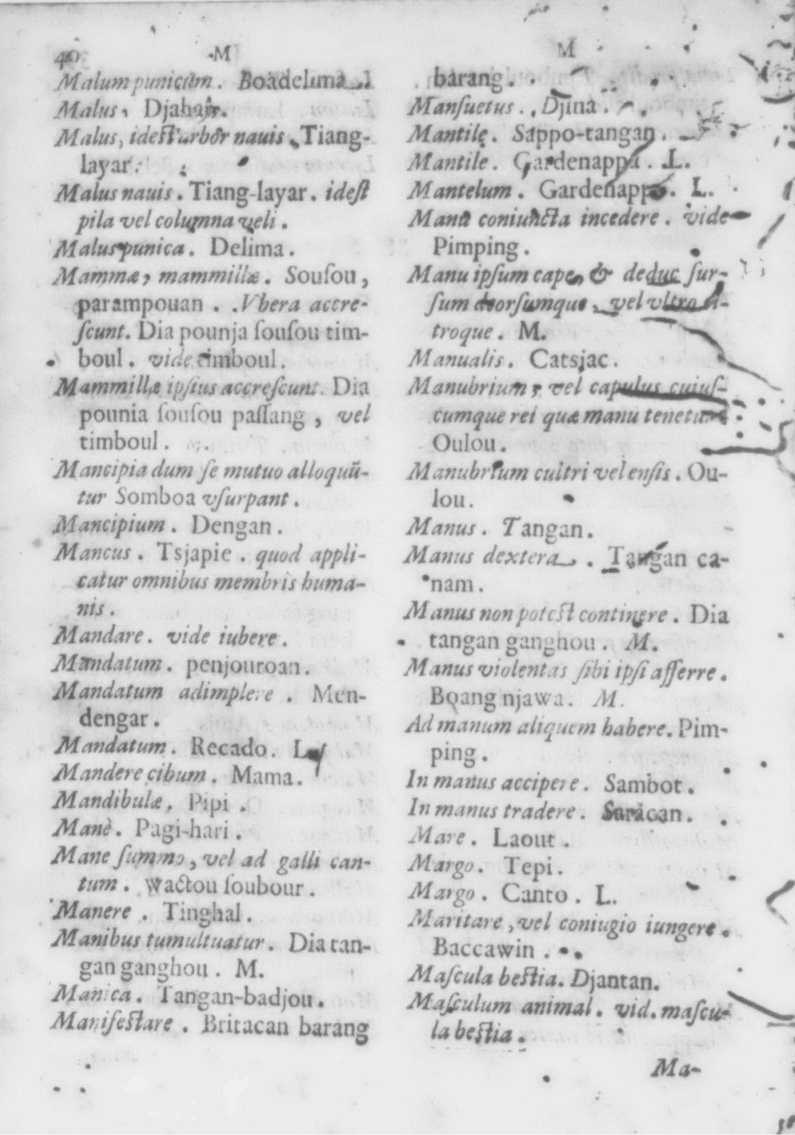 40 M
Malum punicum. Boadelima. I
Malus, Djahajr.
Malus, idest arbor nauis. Tiang-
layar.
Malus nauis. Tiang-layar. idest
pila vel columna veli.
Malus punica. Delima.
Mammæ, mammillæ. Sousou,
parampouan. Vbera accre-
scunt. Dia pounja sousou tim-
boul. vide timboul.
Mammillæ ipsius accrescunt. Dia
pounia sousou passang, vel
timboul.
Mancipia dum se mutuo alloquũ-
tur Somboa vsurpant.
Mancipium. Dengan.
Mancus. Tsjapie. quod appli-
catur omnibus membris huma-
nis.
Mandare. vide iubere.
Mandatum. penjouroan.
Mandatum adimplere. Men-
dengar.
Mandatum. Recado. L
Mandere cibum. Mama.
Mandibulæ. Pipi.
Manè. Pagi-hari.
Mane summo, vel ad galli can-
tum. wactou soubour.
Manere. Tinghal.
Manibus tumultuatur. Dia tan-
gan ganghou. M.
Manica. Tangan-badjou.
Manifestare. Britacan barang
M
barang.
Mansuetus. Djina.
Mantile. Sappo-tangan.
Mantile. Gardenappa. L.
Mantelum. Gardenappo. L.
Manu coniuncta incedere. vide
Pimping.
Manu ipsum cape, & deduc sur-
sum deorsumque, vel vltro ci-
troque. M.
Manualis. Catsjac.
Manubrium, vel capulus cuius-
cumque rei quæ manu tenetur.
Oulou.
Manubrium cultri vel ensis. Ou-
lou.
Manus. Tangan.
Manus dextera. Tangan ca-
nam.
Manus non potest continere. Dia
tangan ganghou. M.
Manus violentas sibi ipsi afferre.
Boang njawa. M.
Ad manum aliquem habere. Pim-
ping.
In manus accipere. Sambot.
In manus tradere. Saracan.
Mare. Laout.
Margo. Tepi.
Margo. Canto. L.
Maritare, vel coniugio iungere.
Baccawin.
Mascula bestia. Djantan.
Masculum animal. vid. mascu-
la bestia.
Ma-